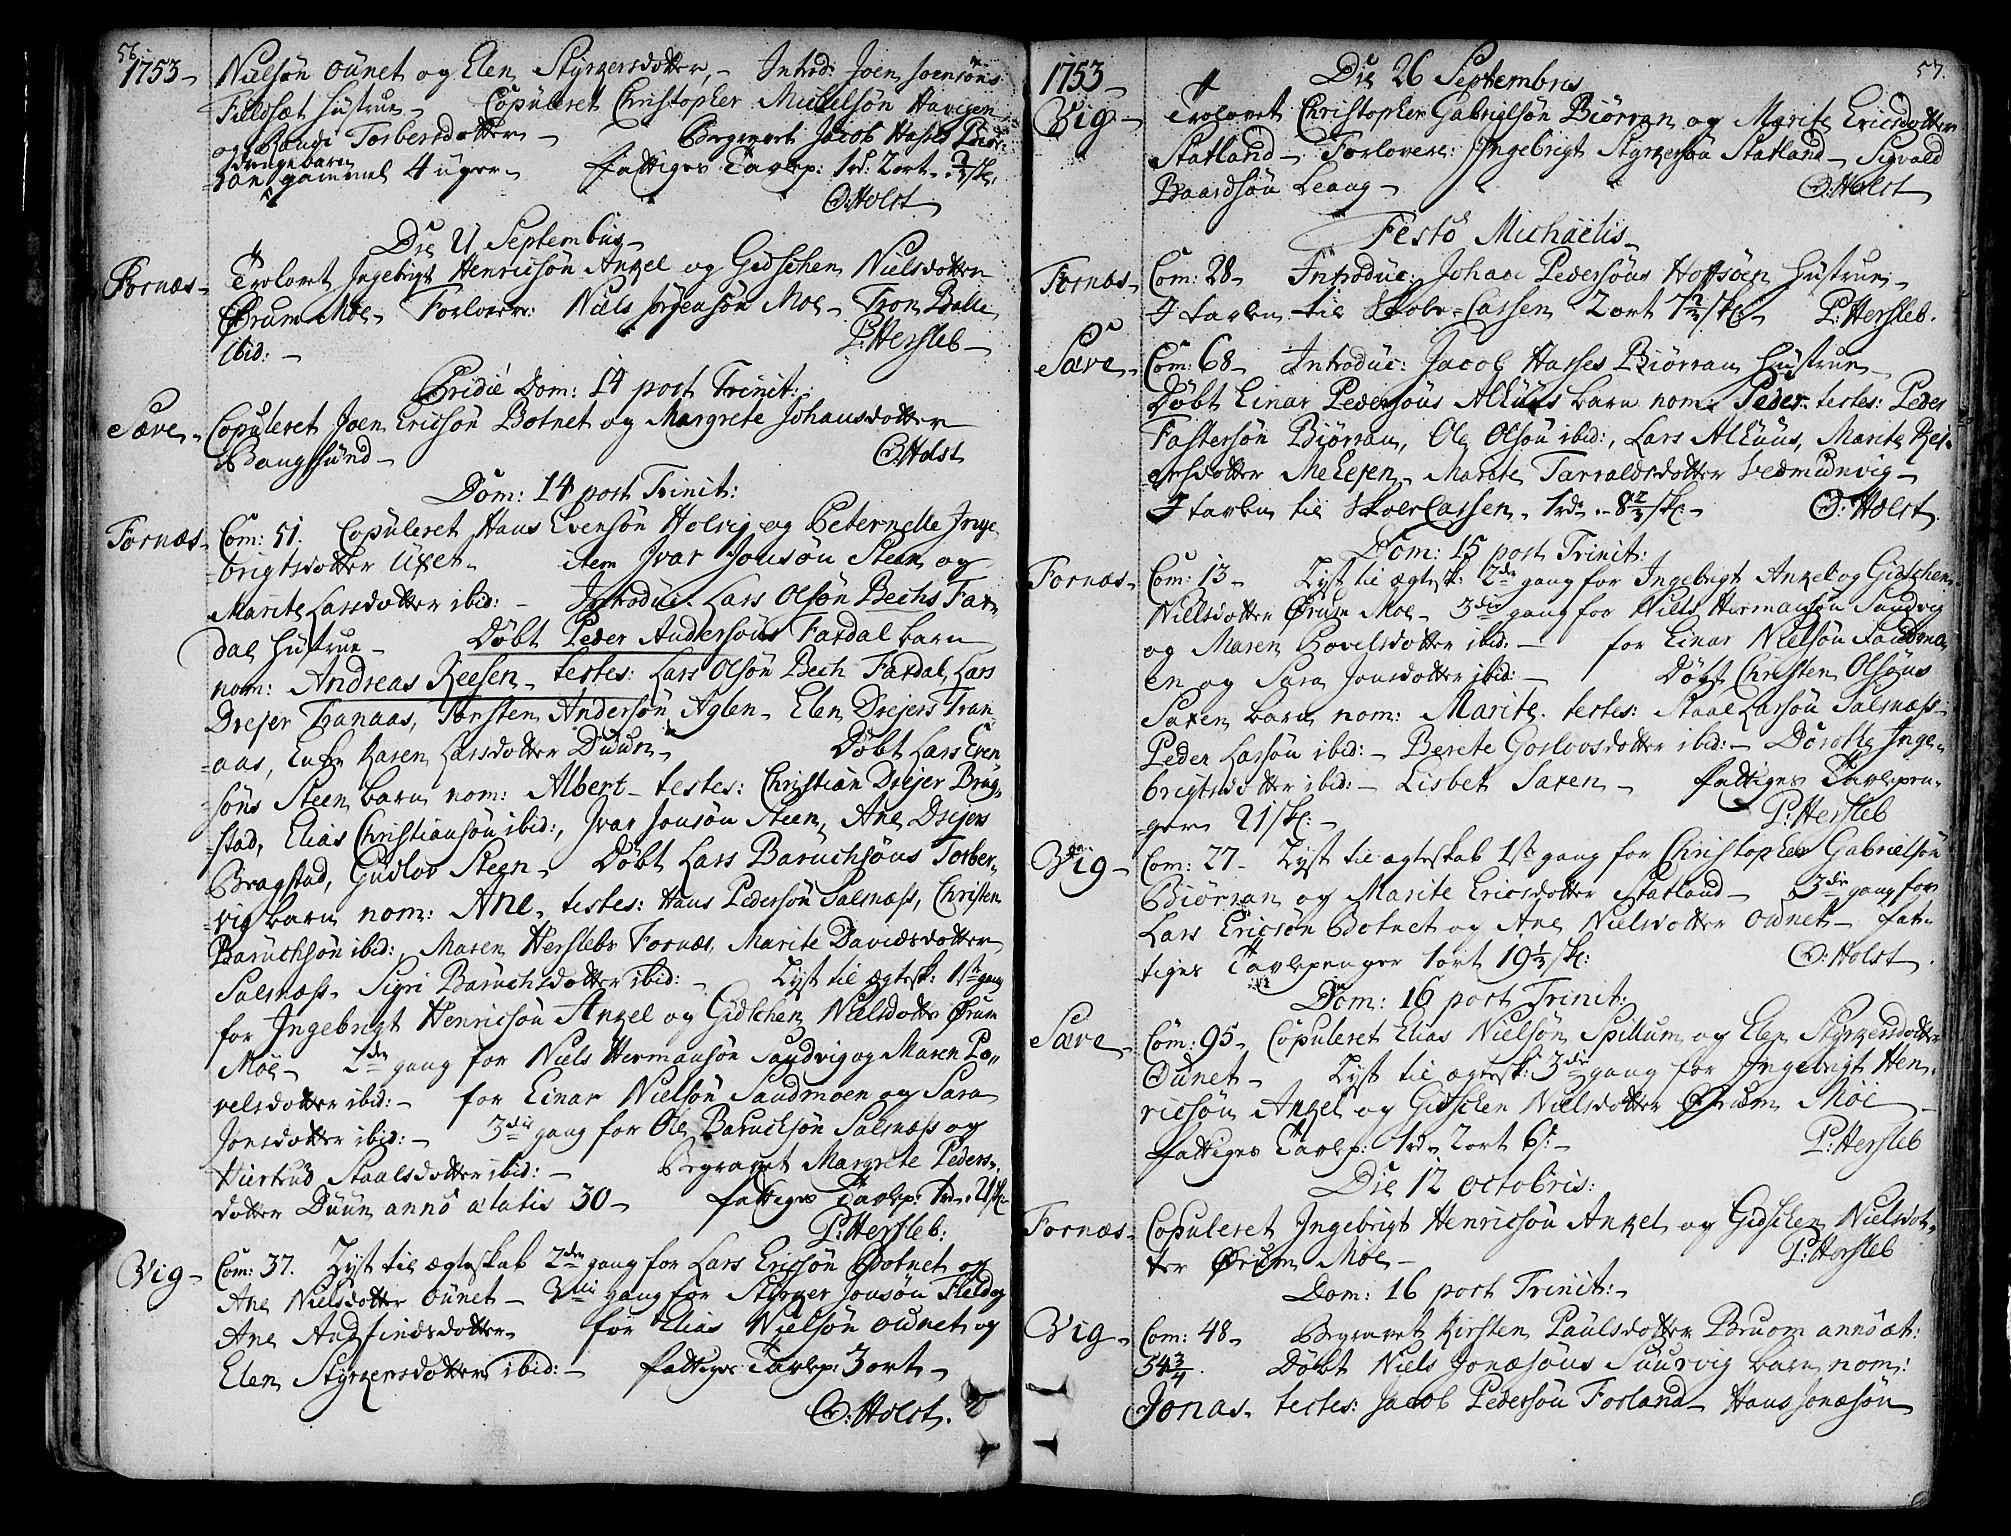 56.
1753 - Nielsøn Ounet og Elen Styrkersdotter, - Introd: Joen Joensøns
Fieldsæt hustrue - Copuleret Christopher Mickelsøn Havigen
og Randi Torbersdotter - Begravet Jacob Hasses Biör-
ran drengebarn gammel 4 uger - fattiges Tavlep: 1rd: 2ort
O: Holst
Die 21 Septembris -
Fornæs - Trolovet Ingebrigt Henricsøn Ankel og Gidschen Nielsdotter
Ørum Moe - Forlovere: Niels Jörgensøn Moe - Tron Balle
ibid: - P: Hersleb -
Pridie Dom: 14 post Trinit:
Sæve - Copuleret Joen Ericsøn Botnet og Margrete Johansdotter
Bangsund - O: Holst
Dom: 14 post Trinit:
Fornæs - Com: 51. Copuleret Hans Evensøn Holvig og Peternelle Inge
brigtsdotter Uxen - item Ivar Jonsøn Steen og
Marite Larsdotter ibid: - Introduc: Lars Olsøn Bechs Far-
dal hustrue - Döbt Peder Andersøns Fardal barn
nom: Andreas Reesen - testes: Lars Olsøn Bech Fardal, Lars
Drejer Tranaas, Torsten Andersøn Aglen - Elen Drejers Tran
aas, Enke Karen Larsdotter Duun - Döbt Lars Even
søns Steen barn nom: Albert - testes: Christian Drejer Brag-
stad, Elias Christiansøn ibid:, Ivar Jonsøn Steen, Ane Drejers
Bragstad, Gudlov Steen - Döbt Lars Baruchsøns Torber-
vig barn nom: Ane, testes: Hans Pedersøn Salsnæss, Christen
Baruchsøn ibid:, Maren Herslebs Fornæs, Marite Davidsdotter
Salsnæss - Sigri Baruchsdotter ibid: - Lyst til ægtesk: 1ste gang
for Ingebrigt Henricsøn Ankel og Gidschen Nielsdotter Ørum
Moe - 2den gang for Niels Hermansøn Sandvig og Maren Po-
velsdotter ibid: - for Einar Nielsøn Sandmoen og Sara
Jonsdotter ibid: - 3die gang for Ole Baruchsøn Salsnæss og
Hiertrud Staalsdotter ibid: - Begravet Margrete Peders-
dotter Duun anno ætatis 30 - fattiges Tavlep: 1rd. 21sk
P: Hersleb:
Vig - Com: 37. Lyst til ægteskab 2den gang for Lars Ericsøn Botnet og
Ane Nielsdotter Ounet - 3die gang for Styrker Jonsøn Field og
Ane Andfindsdotter - for Elias Nielsøn Ounet og
Elen Styrkersdotter ibid: - fattiges Tavlep: 3ort -
O: Holst.
57.
1753 - Die 26 Septembris
Vig - Trolovet Christopher Gabrielsøn Biörran og Marite Ericsdotter
Statland - Forlovere: Ingebrigt Styrkersøn Statland - Sigvald
Baardsøn Leang - O: Holst
Festo Michaëlis -
Fornæs - Com: 28 - Introduc: Johan Pedersøns Hoffsøen hustrue -
I tavlen til Skole-Cassen 2ort 7 1/2 sk: - P: Hersleb.
Sæve - Com: 68 - Introduc: Jacob Hasses Biörran hustrue -
Döbt Einar Pedersøns Alhuus barn nom: Peder - testes: Peder
Fastersøn Biörran, Ole Olsøn ibid:, Lars Alhuus, Marite Rei-
ersdotter - Marite Tarraldsdotter Vedmundvig -
I tavlen til SkoleCassen - 1rd. - 8 2/3 sk: - O: Holst.
Dom: 15 post Trinit:
Fornæs - Com: 13 - Lyst til ægtesk: 2den gang for Ingebrigt Ankel og Gidschen
Nielsdotter Ørum Moe - 3die gang for Niels Hermansøn Sandvig
og Maren Povelsdotter ibid: - for Einar Nielsøn Sandmo-
en og Sara Jonsdotter ibid: - Döbt Christen Olsøns
Saxen barn nom: Marite. testes: Staal Larsøn Salsnæss -
Peder Larsøn ibid: - Berete Gosloosdotter ibid: - Dorothe Inge-
brigtsdotter ibid: - Lisbet Saxen - fattiges Tavlepen-
ger 21 sk: - P: Hersleb
Vig - Com: 27 - Lyst til ægteskab 1ste gang for Christopher Gabrielsøn
Biörran og Marite Ericsdotter Statland - 3die gang for
Lars Ericsøn Botnet og Ane Nielsdotter Ounet - fat-
tiges Tavlepenger 1ort 19 1/2 sk: O: Holst.
Dom: 16 post Trinit:
Sæve - Com: 95 - Copuleret Elias Nielsøn Spillum og Elen Styrkersdotter
Ounet - Lyst til ægtesk: 3die gang for Ingebrigt Hen-
ricsøn Ankel og Gidschen Nielsdotter Ørum Moe -
fattiges Tavlep: 1rd - 2ort 6s: - P: Hersleb
Die 12 octobris:
Fornæs - Copuleret Ingebrigt Henricsøn Ankel og Gidschen Nielsdot-
ter Ørum Moe - P: Hersleb
Dom: 16 post Trinit: -
Vig - Com: 48 - Begravet Kirsten Paulsdotter Bruom anno æt:
54 3/4. Döbt Niels Jonæsøns Suurvig barn nom:
Jonas - testes: Jacob Pedersøn Forland - Hans Jonæsøn